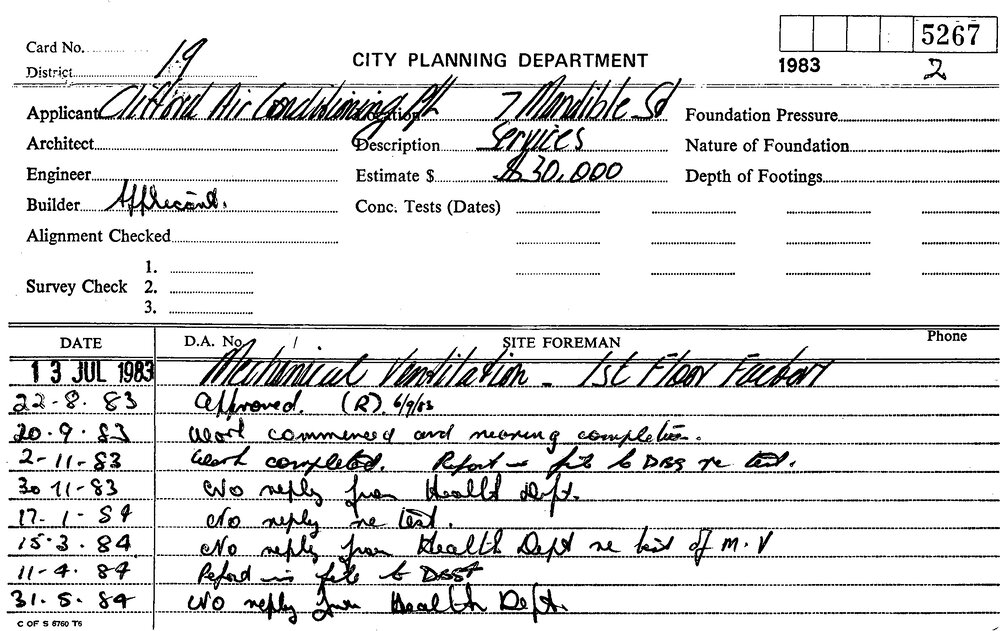 5267
Card No.
1983
2
District 19
CITY PLANNING DEPARTMENT
Applicant Clifford Air Conditioning P/L
Location 7 Mandible St
Foundation Pressure
Architect
Description Services
Nature of Foundation
Engineer
Estimate $ $30,000
Depth of Footings
Builder Applicant.
Conc. Tests (Dates)
Alignment Checked
Survey Check
1.
2.
3.
DATE D.A. No. / SITE FOREMAN Phone
13 JUL 1983 Mechanical Ventilation - 1st Floor Factory
22-8-83 Approved. (R). 6/9/83
20.9.83 Work commenced and nearing completion.
2-11-83 Work completed. Report on file to DBS re test.
30 11-83 No reply from Health Dept.
17-1-84 No reply re test.
15.3.84 No reply from Health Dept re test of M.V
11-4.84 Report on file to
31.5.84 No reply from Health Dept.
C OF S 6760 T6